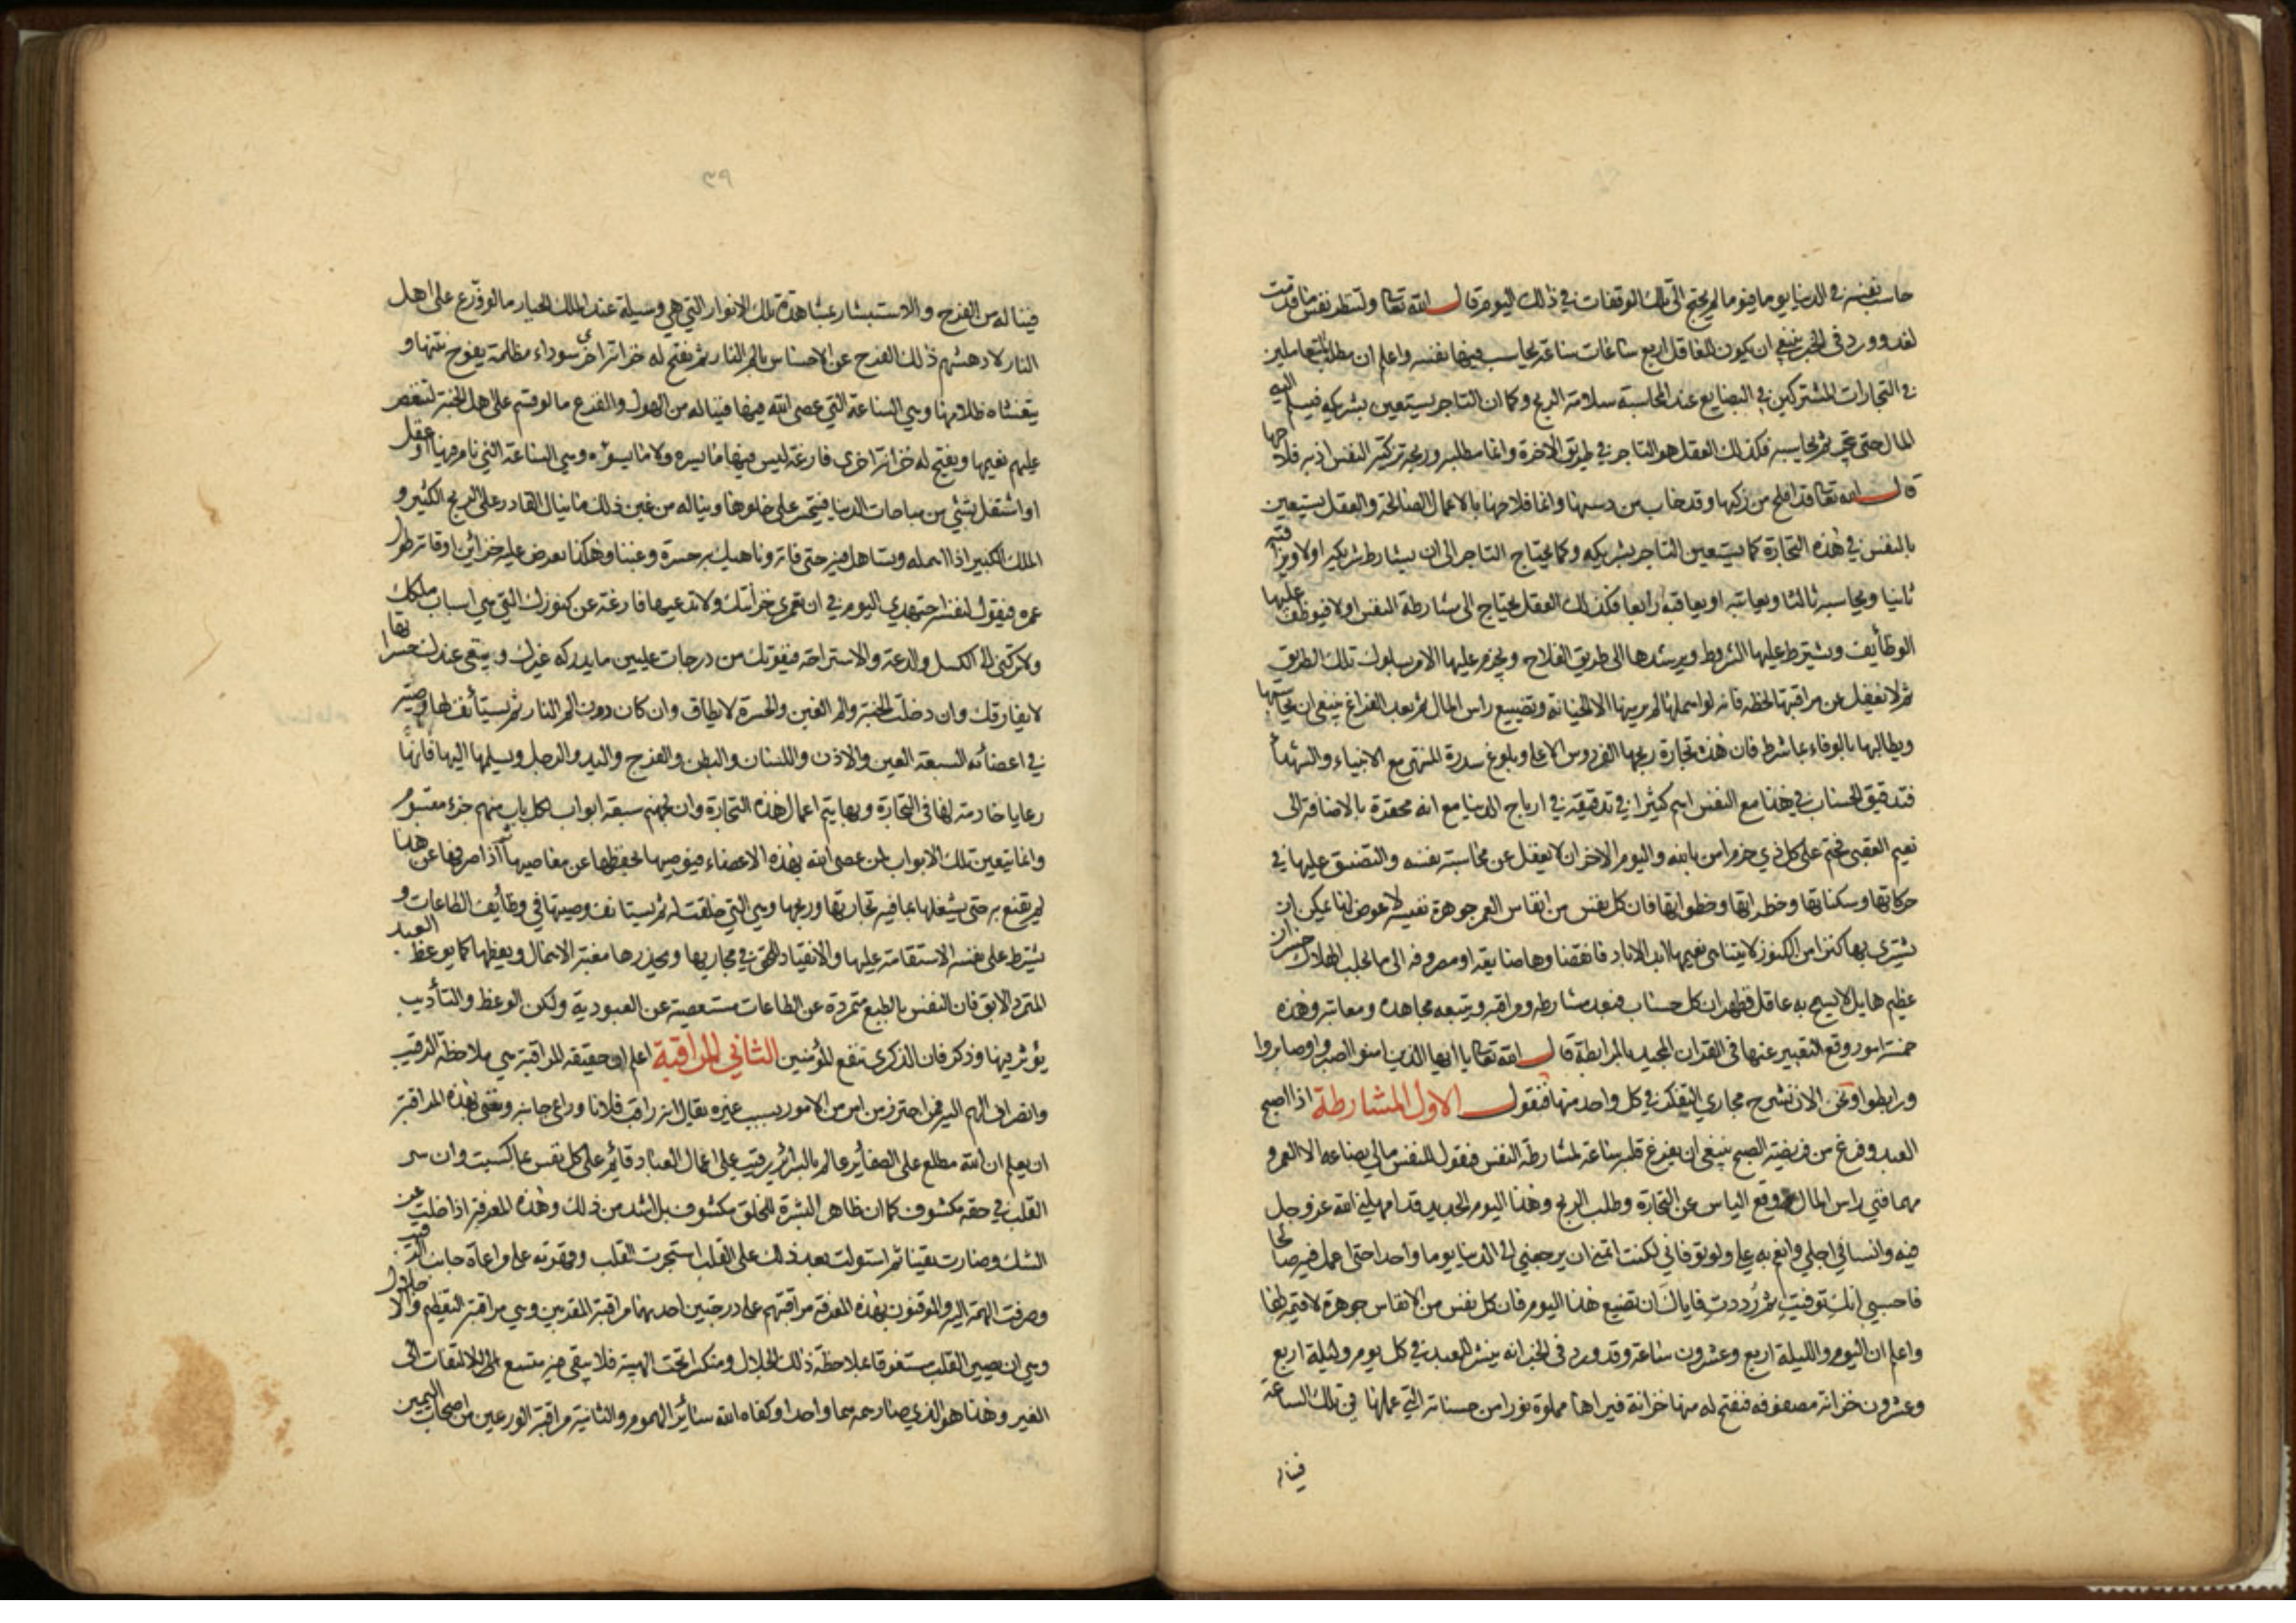 حاسب نفسه في الدنيا يوما فيوما لم يحتج الى تلك الوقفات في ذلك اليوم قال الله تعالى ولتنظر نفس ما قدمت
لغد وورد في الخبر ينبغي ان يكون للعاقل اربع ساعات ساعة يحاسب فيها نفسه واعلم ان مطلب المتعاملين
في التجارات المشتركين في البضايع عند المحاسبة سلامة الربح وكما ان التاجر يستعين بشريكه فيسلم اليه
المال حتى يتجر ثم يحاسبه فكذلك العقل هو التاجر في طريق الاخرة وانما مطلبه وربحه تزكية النفس اذ به فلاحها
قال الله تعالى قد افلح من زكيها وقد خاب من دسيها وانما فلاحها بالاعمال الصالحة والعقل يستعين
بالنفس في هذه التجارة كما يستعين التاجر بشريكه وكما يحتاج التاجر الى ان يشارط شريكه اولا ويراقبه
ثانيا ويحاسبه ثالثا ويعاتبه او يعاقبه رابعا فكذلك العقل يحتاج الى مشارطة النفس اولا فيوظف عليها
الوظائف ويشترط عليها الشروط ويرشدها الى طريق الفلاح ويجزم عليها الامر بسلوك تلك الطريق
ثم لا يغفل عن مراقبتها لحظة فانه لو اهملها لم ير منها الا الخيانة وتضييع راس المال ثم بعد الفراغ ينبغي ان يحاسبها
ويطالبها بالوفاء بما شرط فان هذه تجارة ربحها الفردوس الاعلى وبلوغ سدرة المنتهى مع الانبياء والشهداء
فتدقيق الحساب في هذا مع النفس اهم كثيرا في تدقيقه في ارباح الدنيا مع انه محقرة بالاضافة الى
نعيم العقبى فحتم على كل ذي حزم امن بالله واليوم الاخر ان لا يغفل عن محاسبة نفسه والتضييق عليها في
حركاتها وسكناتها وخطراتها وخطواتها فان كل نفس من انفاس العمر جوهرة نفيسة لا عوض لها يمكن ان
يشترى بها كنز من الكنوز لا يتناهى نعيمها ابد الاباد فانقضاؤها ضايعة او مصروفة الى ما يجلب الهلاك خسران
عظيم هايل لا يسمح به عاقل فظهر ان كل حساب فبعد مشارطة ومراقبة ويتبعه مجاهدة ومعاتبة وهذه
خمسة امور وقع التعبير عنها في القران المجيد بالمرابطة قال الله تعالى يا ايها الذين امنوا اصبروا وصابروا
ورابطوا ونحن الان نشرح مجاري التفكر في كل واحد منها فنقول الاول المشارطة اذا اصبح
العبد وفرغ من فريضة الصبح ينبغي ان يفرغ قلبه ساعة لمشارطة النفس فيقول للنفس ما لي بضاعة الا العمر و
مهما فني راس المال وقع الياس عن التجارة وطلب الربح وهذا اليوم الجديد قد امهلني الله عز وجل
فيه وانسا في اجلي وانعم به علي ولو توفاني لكنت اتمنى ان يرجعني الى الدنيا يوما واحدا حتى اعمل فيه صالحا
فاحسبي انك توفيت ثم رددت فاياك ان تضيع هذا اليوم فان كل نفس من الانفاس جوهرة لا قيمة لها
واعلم ان اليوم والليلة اربع وعشرون ساعة وقد ورد في الخبر انه ينشر للعبد في كل يوم وليلة اربع
وعشرون خزانة مصفوفة فيفتح له منها خزانة فيراها مملوة نورا من حسناته التي عملها في تلك الساعة
فيناله
٣٩
فيناله من الفرح والاستبشار بمشاهدة تلك الانوار التي هي وسيلة عند الملك الجبار ما لو وزع على اهل
النار لادهشهم ذلك الفرح عن الاحساس بالم النار ثم يفتح له خزانة اخرى سوداء مظلمة يفوح نتنها و
يتغشاه ظلامها وهي الساعة التي عصى الله فيها فيناله من الهول والفزع ما لو قسم على اهل الجنة لتنغص
عليهم نعيمها ويفتح له خزانة اخرى فارغة ليس فيها ما يسره ولا ما يسوءه وهي الساعة التي نام فيها او غفل
او اشتغل بشيء من مباحات الدنيا فيتحسر على خلوها ويناله من غبن ذلك ما ينال القادر على الربح الكثير و
الملك الكبير اذا اهمله وتساهل فيه حتى فاته وناهيك به حسرة وغبنا وهكذا يعرض عليه خزائن اوقاته طول
عمره فيقول لنفسه اجتهدي اليوم في ان تعمري خزانتك ولا تدعيها فارغة عن كنوزك التي هي اسباب ملكك
ولا تركني الى الكسل والدعة والاستراحة فيفوتك من درجات عليين ما يدركه غيرك ويبقى عندك حسرا تها
لا يفارقك وان دخلت الجنة والم الغبن والحسرة لا يطاق وان كان دون الم النار ثم يستأنف لها وصية
في اعضائه السبعة العين والاذن واللسان والبطن والفرج واليد والرجل ويسلمها اليها فانها
رعايا خادمة لها في التجارة وبها يتم اعمال هذه التجارة وان لجهنم سبعة ابواب لكل باب منهم جزء مقسوم
وانما يتعين تلك الابواب لمن عصى الله بهذه الاعضاء فيوصيها بحفظها عن معاصيها ثم اذا صرفها عن هذا
لم يقنع به حتى يشغلها بما فيه تجارتها وربحها وهي التي خلقت له ثم يستانف وصيتها في وظائف الطاعات و
يشترط على نفسه الاستقامة عليها والانقياد للحق في مجاريها ويحذرها مغبة الاهمال ويعظها كما يوعظ العبد
المتمرد الابق فان النفس بالطبع متمردة عن الطاعات مستعصية عن العبودية ولكن الوعظ والتأديب
يؤثر فيها وذكر فان الذكرى تنفع المؤمنين الثاني المراقبة اعلم ان حقيقة المراقبة هي ملاحظة الرقيب
وانصراف الهم اليه فمن احترز من امر من الامور بسبب غيره يقال انه راقب فلانا وراعى جانبه ونعني بهذه المراقبة
ان يعلم ان الله مطلع على الضمائر عالم بالسرائر رقيب على اعمال العباد قائم على كل نفس بما كسبت وان سر
القلب في حقه مكشوف كما ان ظاهر البشرة للخلق مكشوف بل اشد من ذلك وهذه المعرفة اذا خلت عن
الشك وصارت يقينا ثم استولت بعد ذلك على القلب استجرت القلب وقهرته على مراعاة جانب الرقيب
وصرفت الهمة اليه والموقنون بهذه المعرفة مراقبتهم على درجتين احديهما مراقبة المقربين وهي مراقبة التعظيم والاجلال
وهي ان يصير القلب مستغرقا بملاحظة ذلك الجلال ومنكسرا تحت الهيبة فلا يبقى فيه متسع للالتفات الى
الغير وهذا هو الذي صار همه هما واحدا وكفاه الله سائر الهموم والثانية مراقبة الورعين من اصحاب اليمين